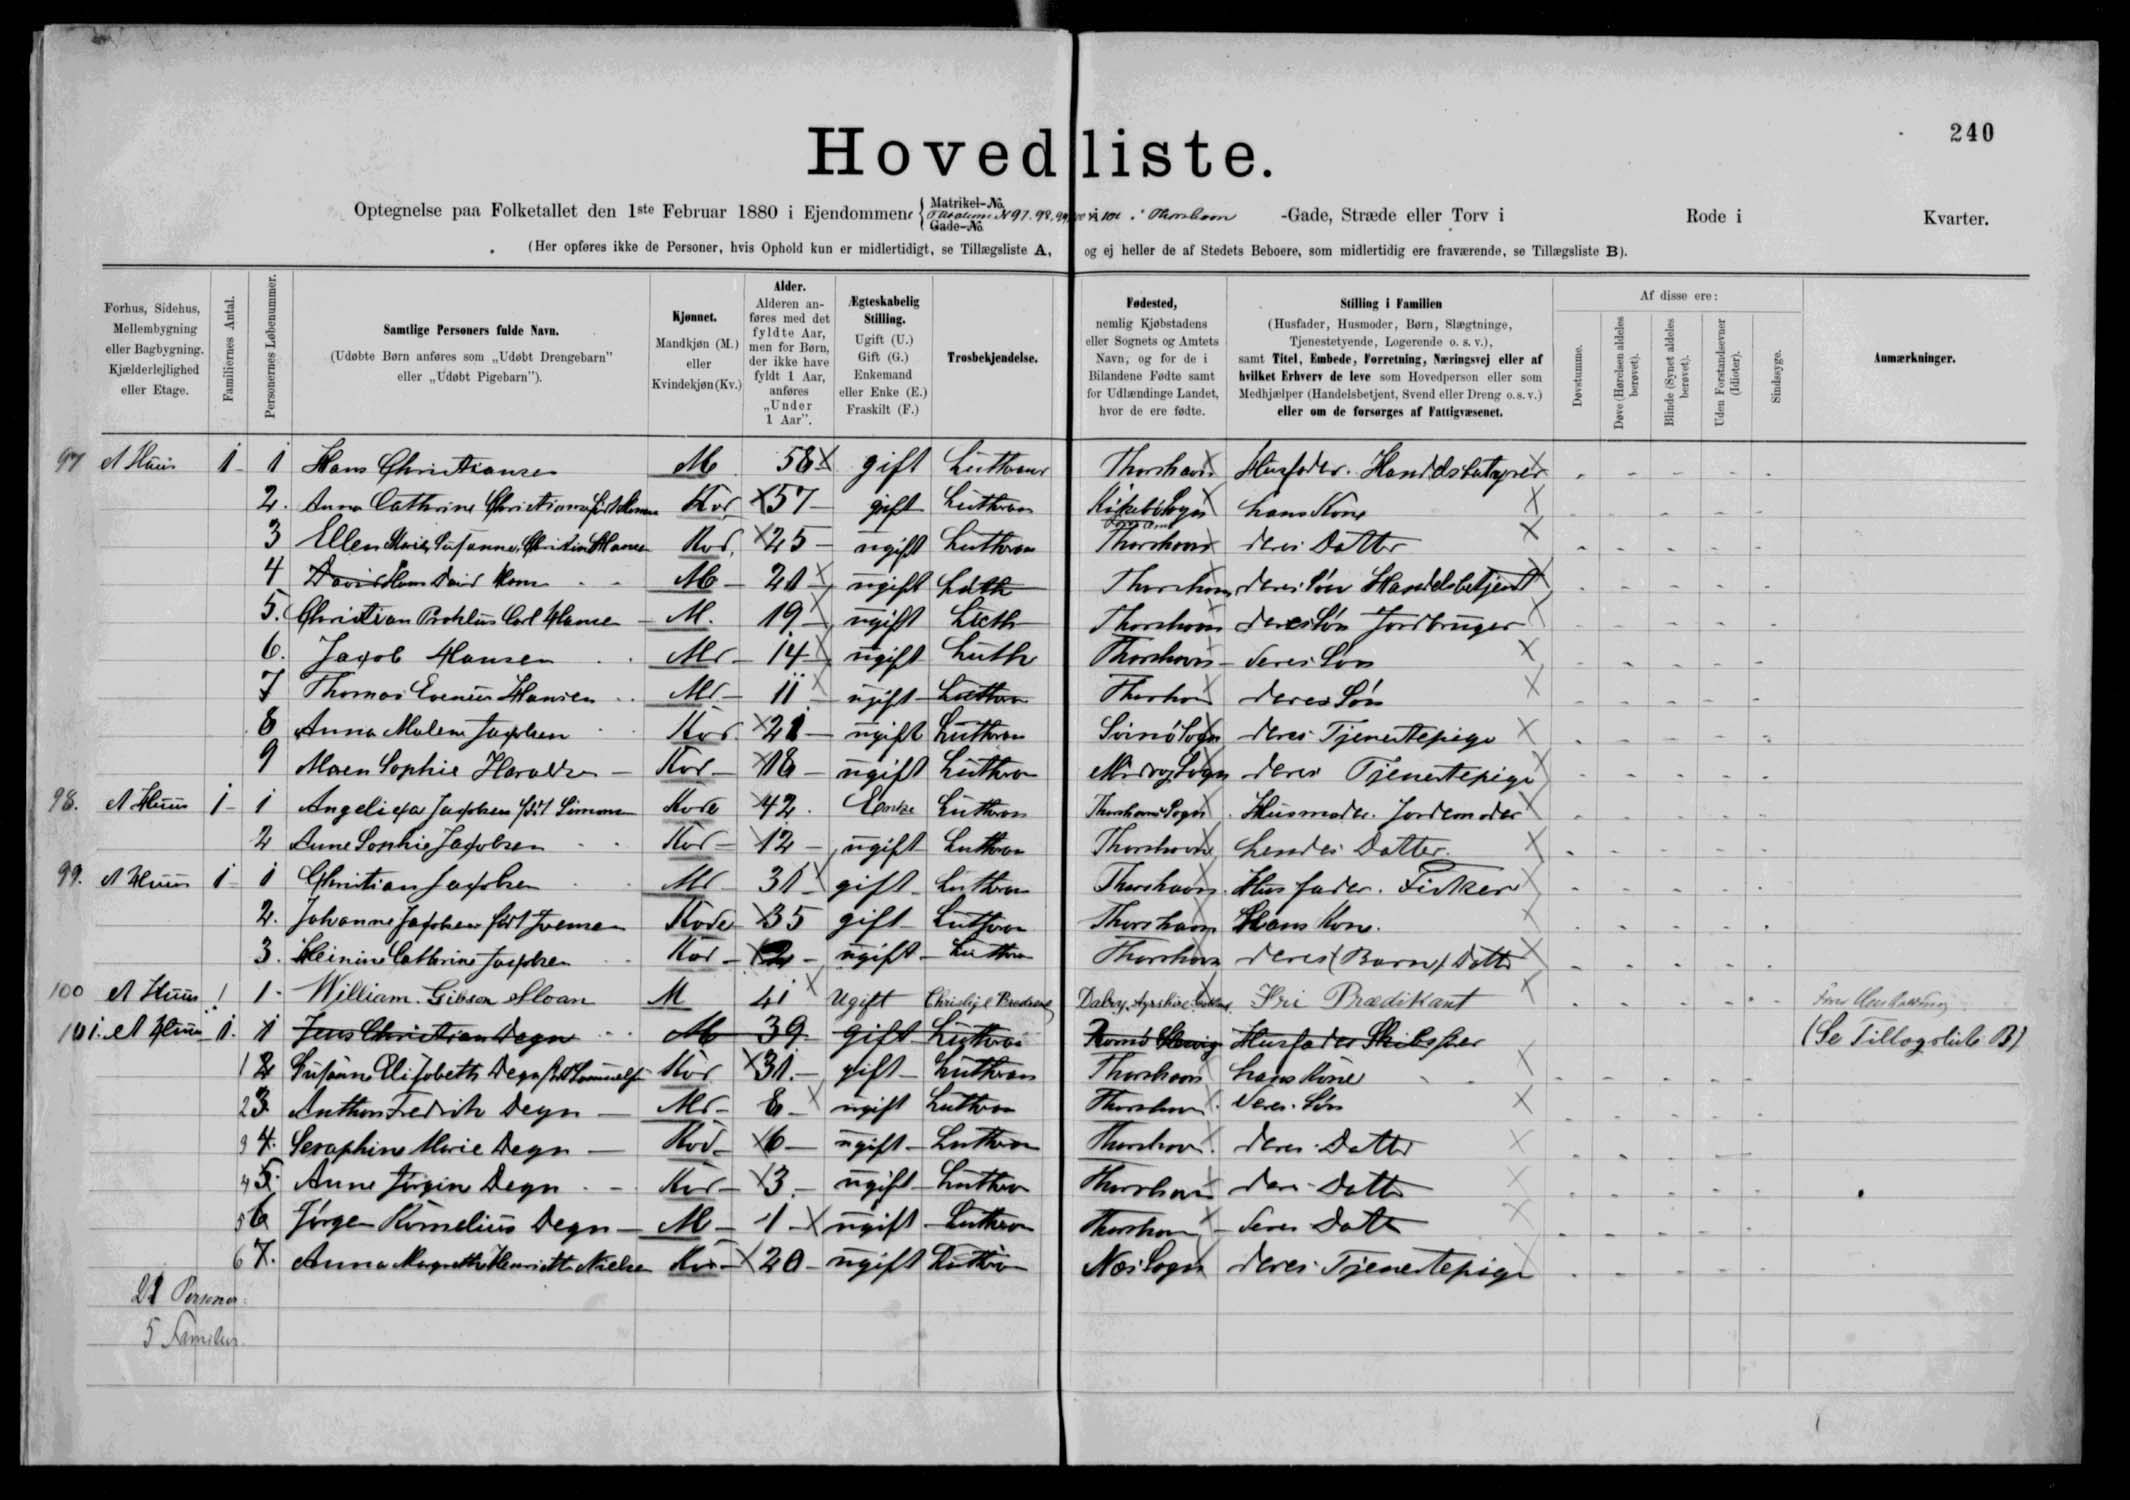 240
Hovedliste.
Optegnelse paa Folketallet den 1ste Februar 1880 i Ejendommene { Matrikel-No. No 97. 98. 99. 100 101 i Thorshavn Gade-No. -Gade, Stræde eller Torv i Rode i Kvarter.
(Her opføres ikke de Personer, hvis Ophold kun er midlertidigt, se Tillægsliste A, og ej heller de af Stedets Beboere, som midlertidig ere fraværende, se Tillægsliste B).
Forhus, Sidehus, Mellembygning eller Bagbygning. Kjælderlejlighed eller Etage.
Familiernes Antal.
Personernes Løbenummer.
Samtlige Personers fulde Navn. (Udøbte Børn anføres som „Udøbt Drengebarn" eller „Udøbt Pigebarn").
Kjønnet. Mandkjøn (M.) eller Kvindekjøn (Kv.)
Alder. Alderen anføres med det fyldte Aar, men for Børn, der ikke have fyldt 1 Aar, anføres „Under 1 Aar".
Ægteskabelig Stilling. Ugift (U.) Gift (G.) Enkemand eller Enke (E.) Fraskilt (F.)
Trosbekjendelse.
Fødested, nemlig Kjøbstadens eller Sognets og Amtets Navn, og for de i Bilandene Fødte samt for Udlændinge Landet, hvor de ere fødte.
Stilling i Familien (Husfader, Husmoder, Børn, Slægtninge, Tjenestetyende, Logerende o. s. v.), samt Titel, Embede, Forretning, Næringsvej eller af hvilket Erhverv de leve som Hovedperson eller som Medhjælper (Handelsbetjent, Svend eller Dreng o. s. v.) eller om de forsørges af Fattigvæsenet.
Af disse ere:
Døvstumme.
Døve (Hørelsen aldeles berøvet).
Blinde (Synet aldeles berøvet).
Uden Forstandsevner (Idioter).
Sindssyge.
Anmærkninger.
97 A Huus 1 1 Hans Christiansen M 58 gift Lutheran Thorshavn Husfader.
2. Anna Cathrine Kvd 57 gift Lutheran Kirkebø Sogn hans Kone
3 Ellen Marie Susanne Christine Hansen Kvd. 25 ugift Lutheran Thorshavn deres Datter
4 David Hans David M 21 ugift Luth Thorshavn deres Søn Handelsbetjent
5. Christian Carl Hansen M. 19 ugift Luth Thorshavn deres Søn Jordbruger
6. Jacob Hansen M 14 ugift Luth Thorshavn deres Søn
7 Thomas Hansen M 11 ugift Lutheran Thorshavn deres Søn
8 Anna Malene Jacobsen Kvd 21 ugift Lutheran Svinø Sogn deres Tjenestepige
9 Maren Sophie Kvd 18 ugift Lutheran Sogn deres Tjenestepige
98. A Huus 1 1 Angelica Jacobsen født Simonsen Kvde 42. Enke Lutheran Thorshavns Sogn Husmoder. Jordemoder
2 Anne Sophie Jacobsen Kvd 12 ugift Lutheran Thorshavn hendes Datter.
99. A Huus 1 1 Christian Jacobsen M 31 gift Lutheran Thorshavn. Husfader. Fisker
2. Johanne Jacobsen født Joensen Kvde 35 gift Lutheran Thorshavn Hans Kone.
3. Heinine Cathrine Jacobsen Kvd 2 ugift Lutheran Thorshavn deres (Barn) Datter
100 A Huus 1 1. William Gibson Sloan M 41 Ugift Dalry. Ayrshire Fri Prædikant
101. A Huus 1. 1 Jens Christian Degn M 39 gift Lutheran Husfader (Se Tillægsliste B)
1 2 Susanne Elisabeth Degn Kvd 31. gift Lutheran Thorshavn hans Kone
2 3 Anthon Fredrik Degn M 8 ugift Lutheran Thorshavn. deres Søn
3 4. Seraphine Marie Degn Kvd 6 ugift Lutheran Thorshavn. deres Datter
4 5. Anne Jørgine Degn Kvd 3 ugift Lutheran Thorshavn deres Datter
5 6 Jørgen Kornelius Degn M 1 ugift Lutheran Thorshavn deres Datter
6 7. Anna Margrethe Henriette Nielsen Kvd 20 ugift Lutheran Næs Sogn deres Tjenestepige
21 Personer.
5 Familier.